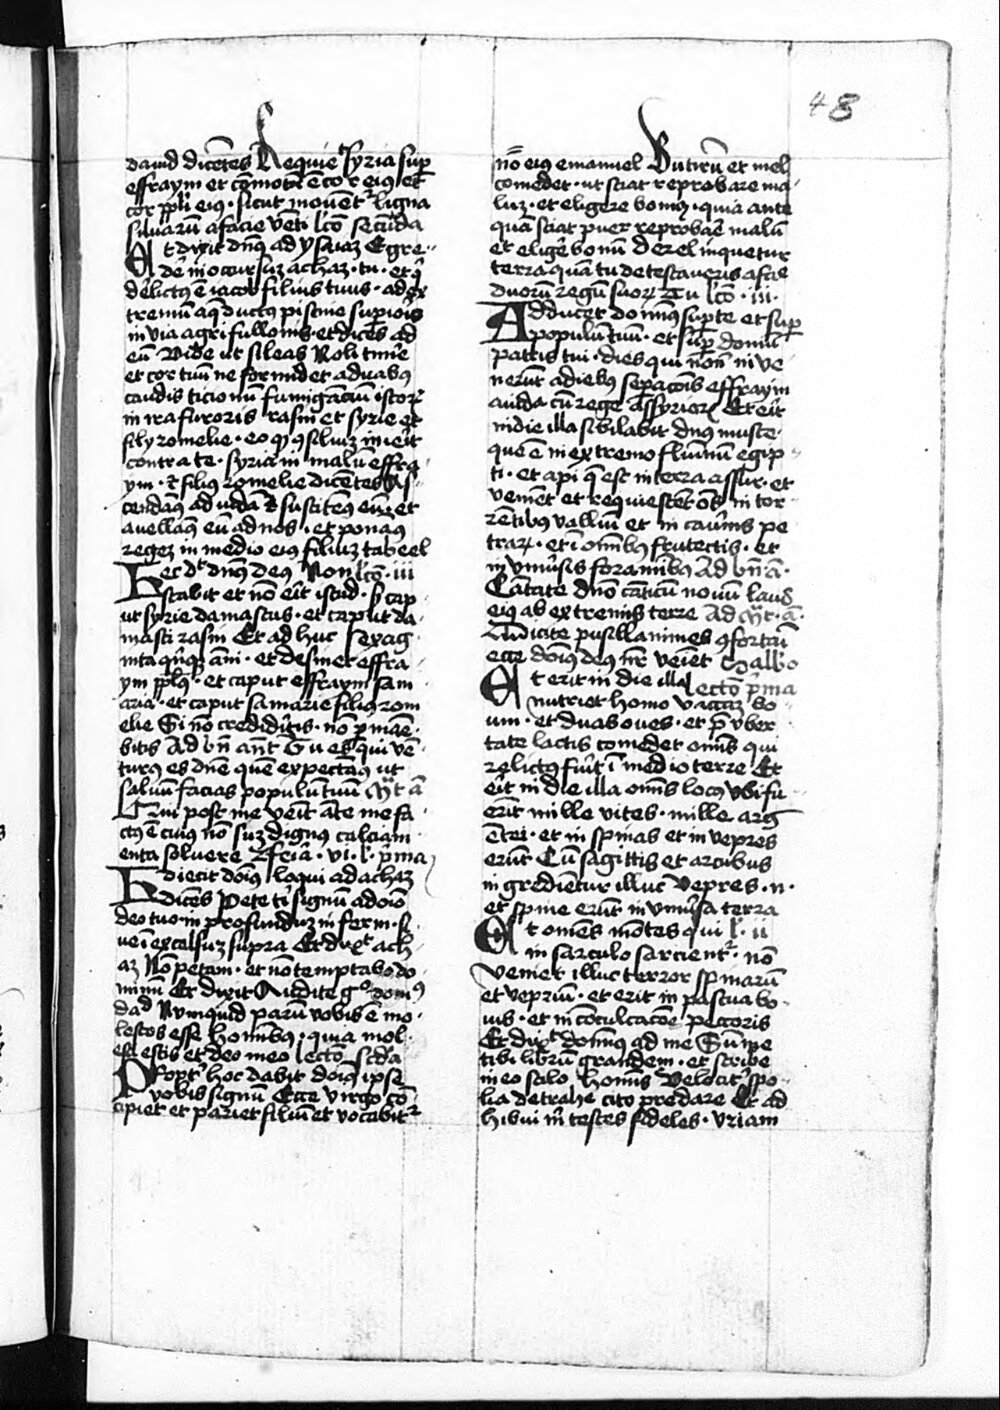 48
dauid dicētes Requieuit syria sup
effraym et cōmotū ē cor eius et
cor ppli eius · sicut mouent ligna
siluarū a facie vēti lcō secūda
Et dixit dn̄s ad ysaiaz Egre-
dē in occursuz achaz · tu · et q
dēlictus ē iacob filius tuus · ad ex
tremum aqᵉductus piscine supioris
in via agri fullonis · et dices ad
eū Vide ut sileas Noli timē
et cor tuū ne formidet a duabus
caudis ticionū fumigāciū istor
in ira furoris rasin et syrie et
filij romelie · eo qd cōsiliuz inierit
contra te · syria in malū effra
ym · et filius romelie dicētes As-
cendamus ad iudā et suscitemus eum et
auellamus eū ad nos · et ponamus
regez in medio eius filiuz tabeel
Hec dt dn̄s deus Non lcō · iii
stabit et nō erit istud · sz cap
ut syrie damascus · et caput da-
masci rasin Et adhuc sexag-
inta quinqz āni · et desinet effra-
ym pplus · et caput effraym sam
aria · et caput samarie filius rom
elie Si nō credideritis · nō pmāe-
bitis Ad bn̄ an̄t Tu es qui vē-
turus es dn̄e quē expectamus ut
saluū facias populū tuū
Qui post me venit āte me fa
ctus ē cuius nō suz dignus calciam
enta soluere feīa · vi · l · pma
Et diecit doīus loqui ad achaz
dicēs Pete tī signū a doīo
deo tuo in profunduz inferni · si
ue ī excelsuz supra Et dixt ach
az Nō petam · et nō temptabo do-
minū Et dixit Audite go domus
dad Numquid parū vobis ē mo-
lestos esse homībus · quia mol-
esti estis et deo meo lectō scda
Proptᵉ hoc dabit doīus ipse
vobis signū Ecce virgo cō
cipiet et pariet filiū et vocabitʳ
nō eius emanuel Butirū et mel
comedet · ut sciat reprobare ma-
luz · et eligere bonuz · quia ante
quā sciat puer reprobare malū
et eligere bonū derelinquetur
terra quā tu detestaueris a facie
duorū regū suorz Tu lcō · iii ·
Adducet domīus supte et sup
populū tuū · et sup domū
patris tui · dies qui nōn ve
nerūt a diebus sepacōis effraym
a iuda cū rege assyriorz Et erit
in die illa sibilabit dn̄s musce
que ē in extremo fluminū egip-
ti · et api q̄ est in terra assur · et
venient et requiescēt ōs in tor-
rētibus valliū et in cauernis pe
trarz · et ī omībus frutectis · et
in vniuersis foraminibus Ad bn̄ ā ·
Cantate dn̄o cāticū nouū laus
eius ab extremis terre Ad
Dicite pusillanimes cōfortamī
ecce doīus deus nr̄ veniet Sabbo
Et erit in die illa lectō pma
nutriet homo vaccaz bo-
um · et duas oues · et p̄ vber-
tate lactis comedet omnis qui
relictus fuerit ī medio terre Et
erit in die illa omnis locus vbi fu-
erint mille vites · mille arg
ētei · et in spinas et in vepres
erūt Cū sagittis et arcubus
ingredientur illuc Vepres · n ·
et spine erūt in vniūsa terra
Et omēs mōtes qui l · ii
in sarculo sarcientʳ · nō
veniet illuc terror spinarū
et vepriū · et erit in pascua bo-
uis · et in cōculcacōe peccoris
Et dixt domīus ad me Sume
tibi librū grandem · et scribe
in eo stilo hominis Velocitᵉ spo-
lia detrahe cito predare Et ad
hibui m̄ testes fideles · vriam